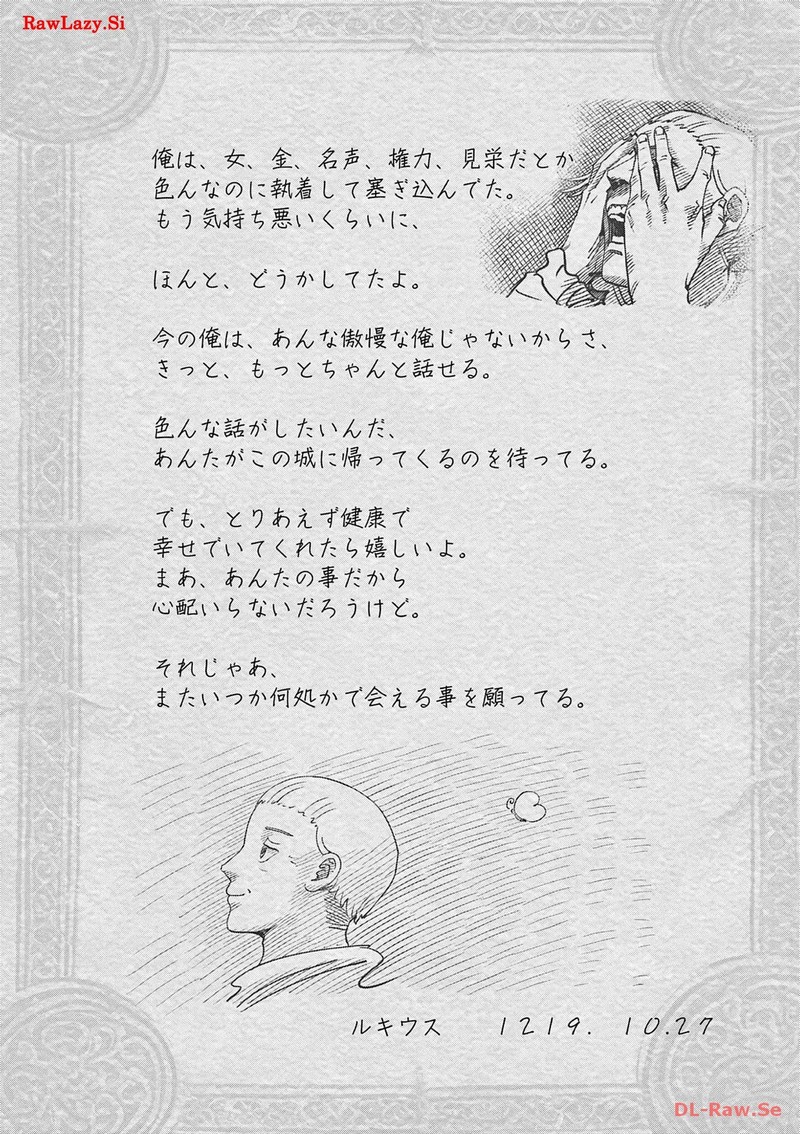 RawLazy.Si
俺は、女、金、名声、権力、見栄だとか
色んなのに執着して塞ぎ込んでた。
もう気持ち悪いくらいに、
ほんと、どうかしてたよ。
今の俺は、あんな傲慢な俺じゃないからさ、
きっと、もっとちゃんと話せる。
色んな話がしたいんだ、
あんたがこの城に帰ってくるのを待ってる。
でも、とりあえず健康で
幸せでいてくれたら嬉しいよ。
まあ、あんたの事だから
心配いらないだろうけど。
それじゃあ、
またいつか何処かで会える事を願ってる。
ルキウス　１２１９．１０.２７
DL-Raw.Se